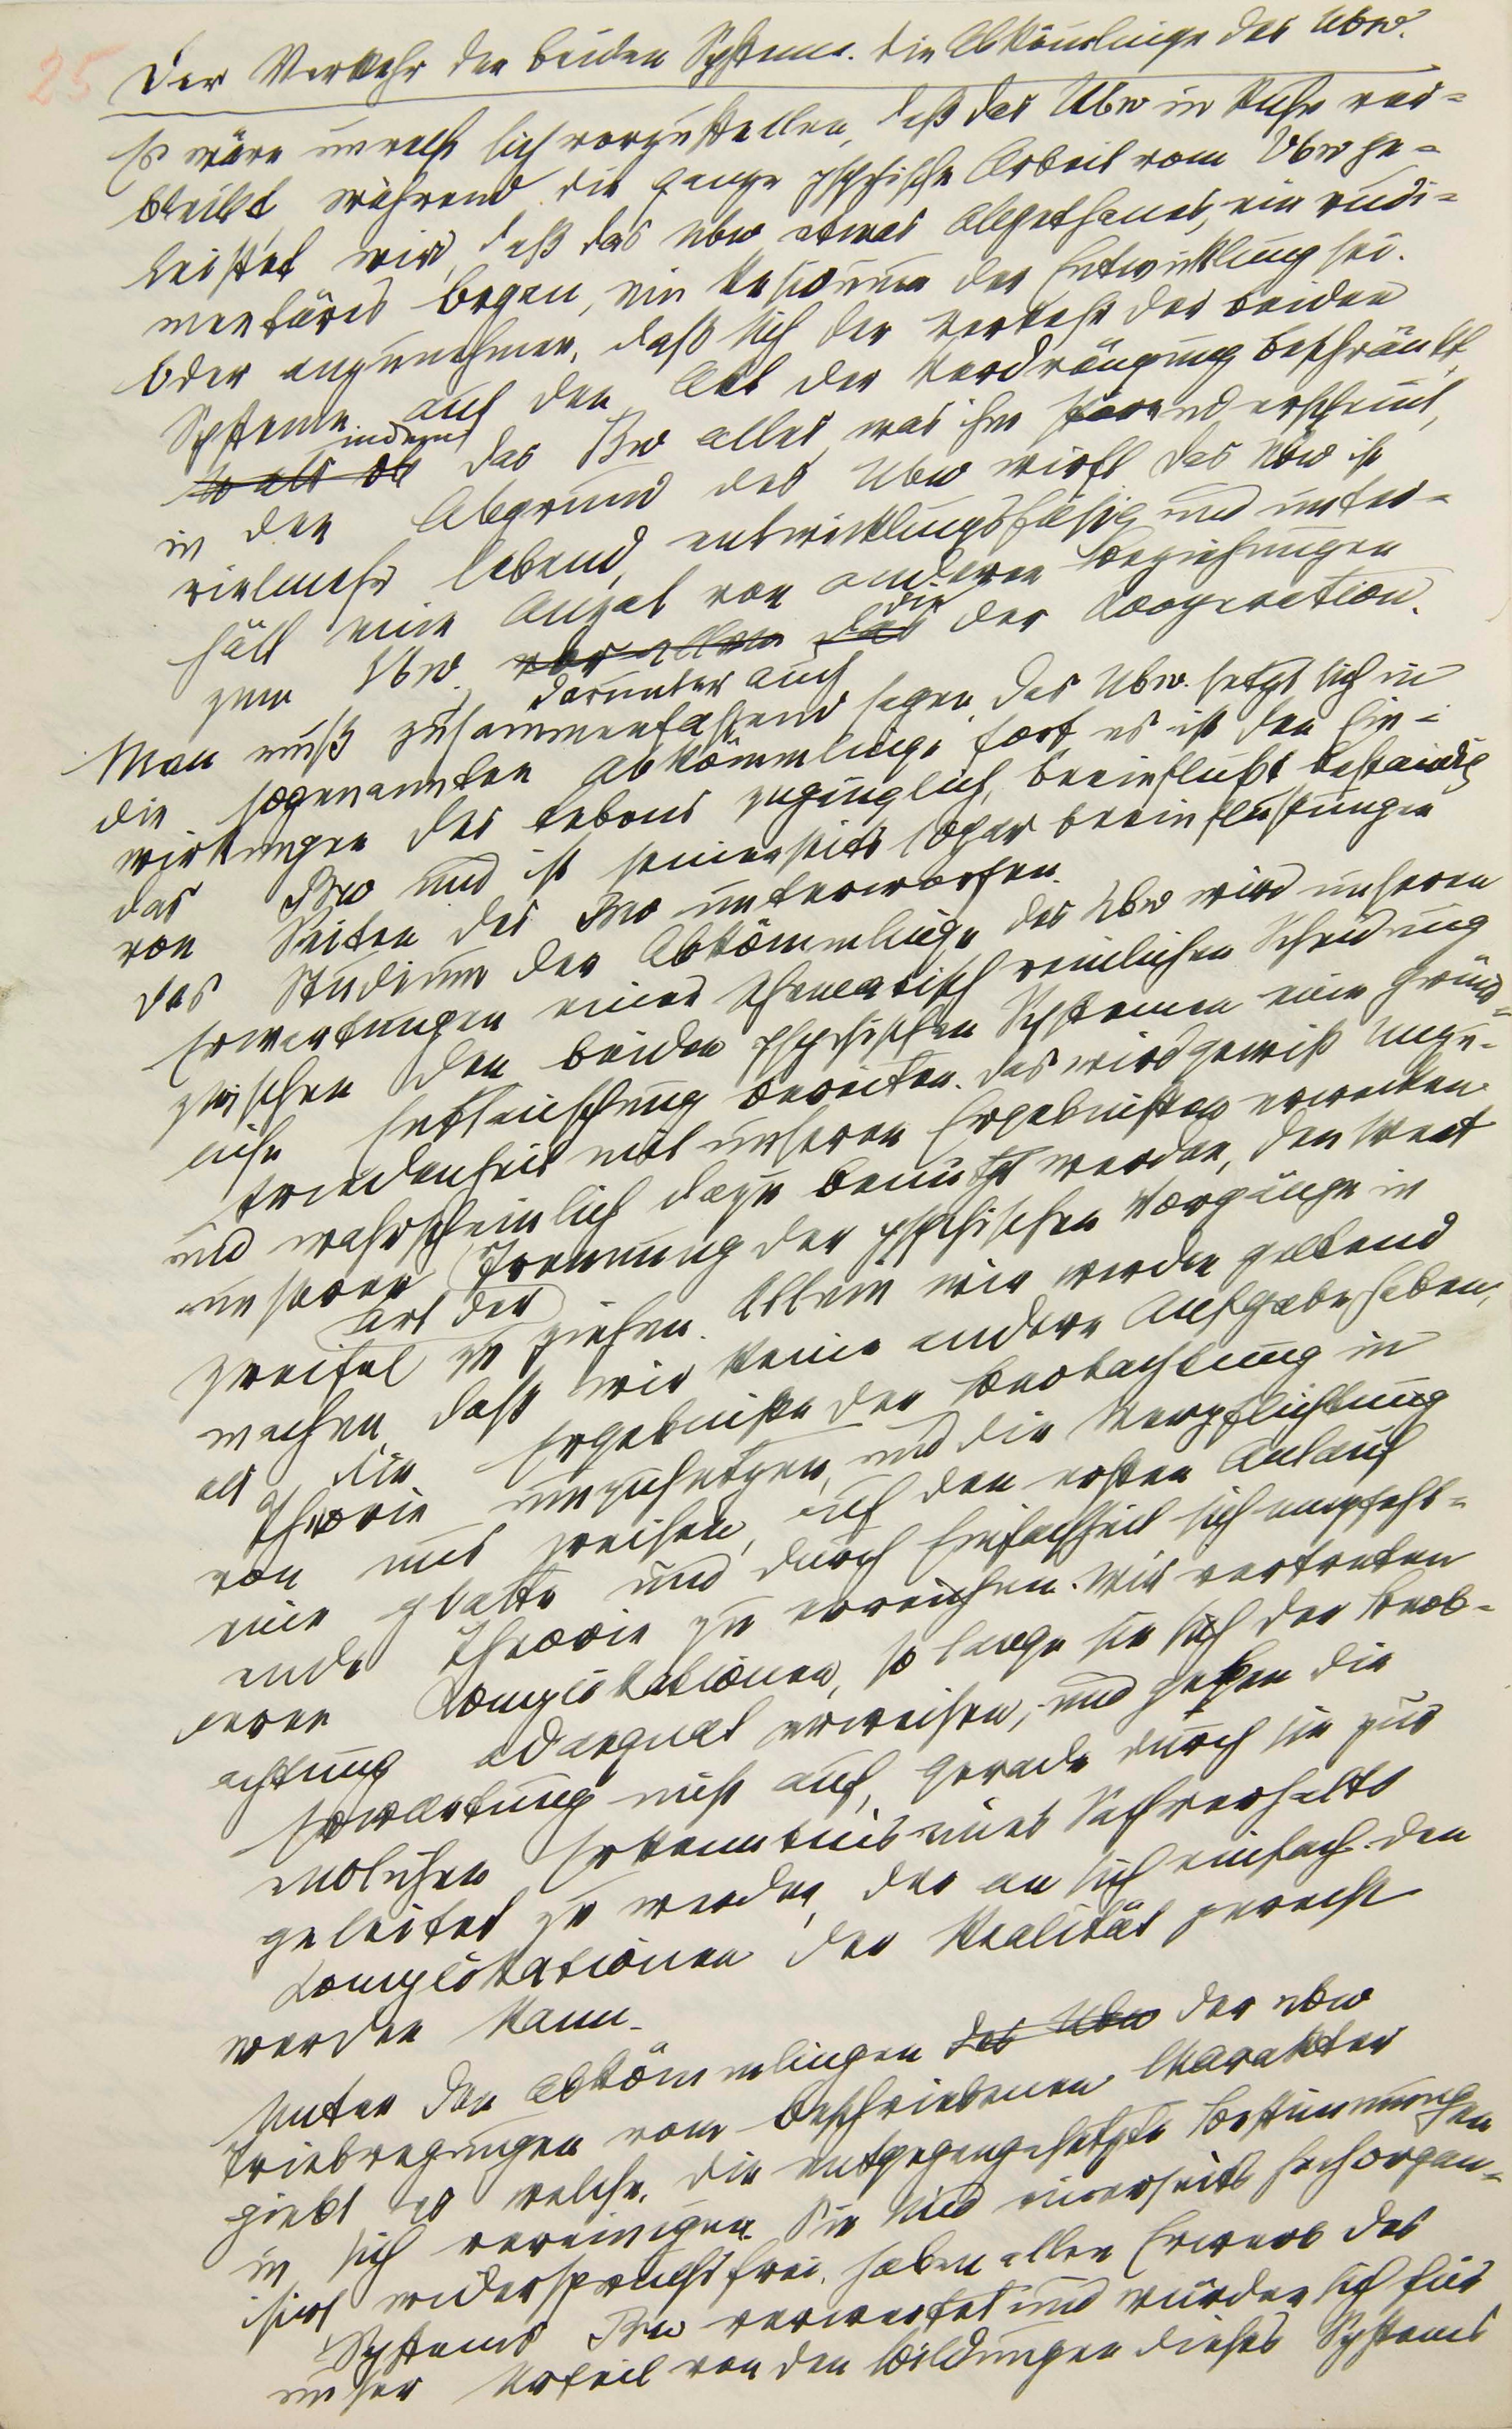 25
Der Verkehr der beiden Systeme. Die Abkömmlinge des Ubw.
Es wäre unrecht sich vorzustellen, daß das Ubw in Ruhe ver-
bleibt, während die ganze psychische Arbeit vom Vbw ge-
leistet wird, daß das Ubw etwas Abgethanes, ein rudi-
mentäres Organ, ein Residuum der Entwicklung sei.
Oder anzunehmen, daß sich der Verkehr der beiden
Systeme auf den Akt der Verdrängung beschränkt,
so als ob indem das Vbw alles, was ihm störend erscheint,
in den Abgrund des Ubw wirft. Das Ubw ist
vielmehr lebend, entwicklungsfähig und unter-
hält eine Anzal von anderen Beziehungen
zum Vbw, vor allem das darunter auch die der Cooperation.
Man muß zusammenfassend sagen, das Ubw. setzt sich in
die sogenannten Abkömmlinge fort, es ist den Ein-
wirkungen des Lebens zugänglich, beeinflußt beständig
das Vbw und ist seinerseits sogar Beeinflussungen
von Seiten des Vbw unterworfen.
Das Studium der Abkömmlinge des Ubw wird unseren
Erwartungen einer schematisch reinlichen Scheidung
zwischen den beiden psychischen Systemen eine gründ-
liche Enttäuschung bereiten. Das wird gewiß Unzu-
friedenheit mit unseren Ergebnissen erwecken
und wahrscheinlich dazu benützt werden, den Wert
unserer Art der Trennung der psychischen Vorgänge in
Zweifel zu ziehen. Allein wir werden geltend
machen, daß wir keine andere Aufgabe haben,
als die Ergebnisse der Beobachtung in
Theorie umzusetzen, und die Verpflichtung
von uns weisen, auf den ersten Anlauf
eine glatte und durch Einfachheit sich empfehl-
ende Theorie zu erreichen. Wir vertreten
deren Complikationen, so lange sie sich der Beob-
achtung adaequat erweisen, und geben die
Erwartung nicht auf, gerade durch sie zur
endlichen Erkenntnis eines Sachverhalts
geleitet zu werden, der an sich einfach den
Complikationen der Realität gerecht
werden kann.
Unter den Abkömmlingen des Ubw der ubw
Triebregungen vom beschriebenen Charakter
giebt es welche, die entgegengesetzte Bestimmungen
in sich vereinigen. Sie sind einerseits hochorgan-
isirt widerspruchsfrei, haben allen Erwerb des
Systems Vbw verwertet und würden sich für
unser Urteil von den Bildungen dieses Systems